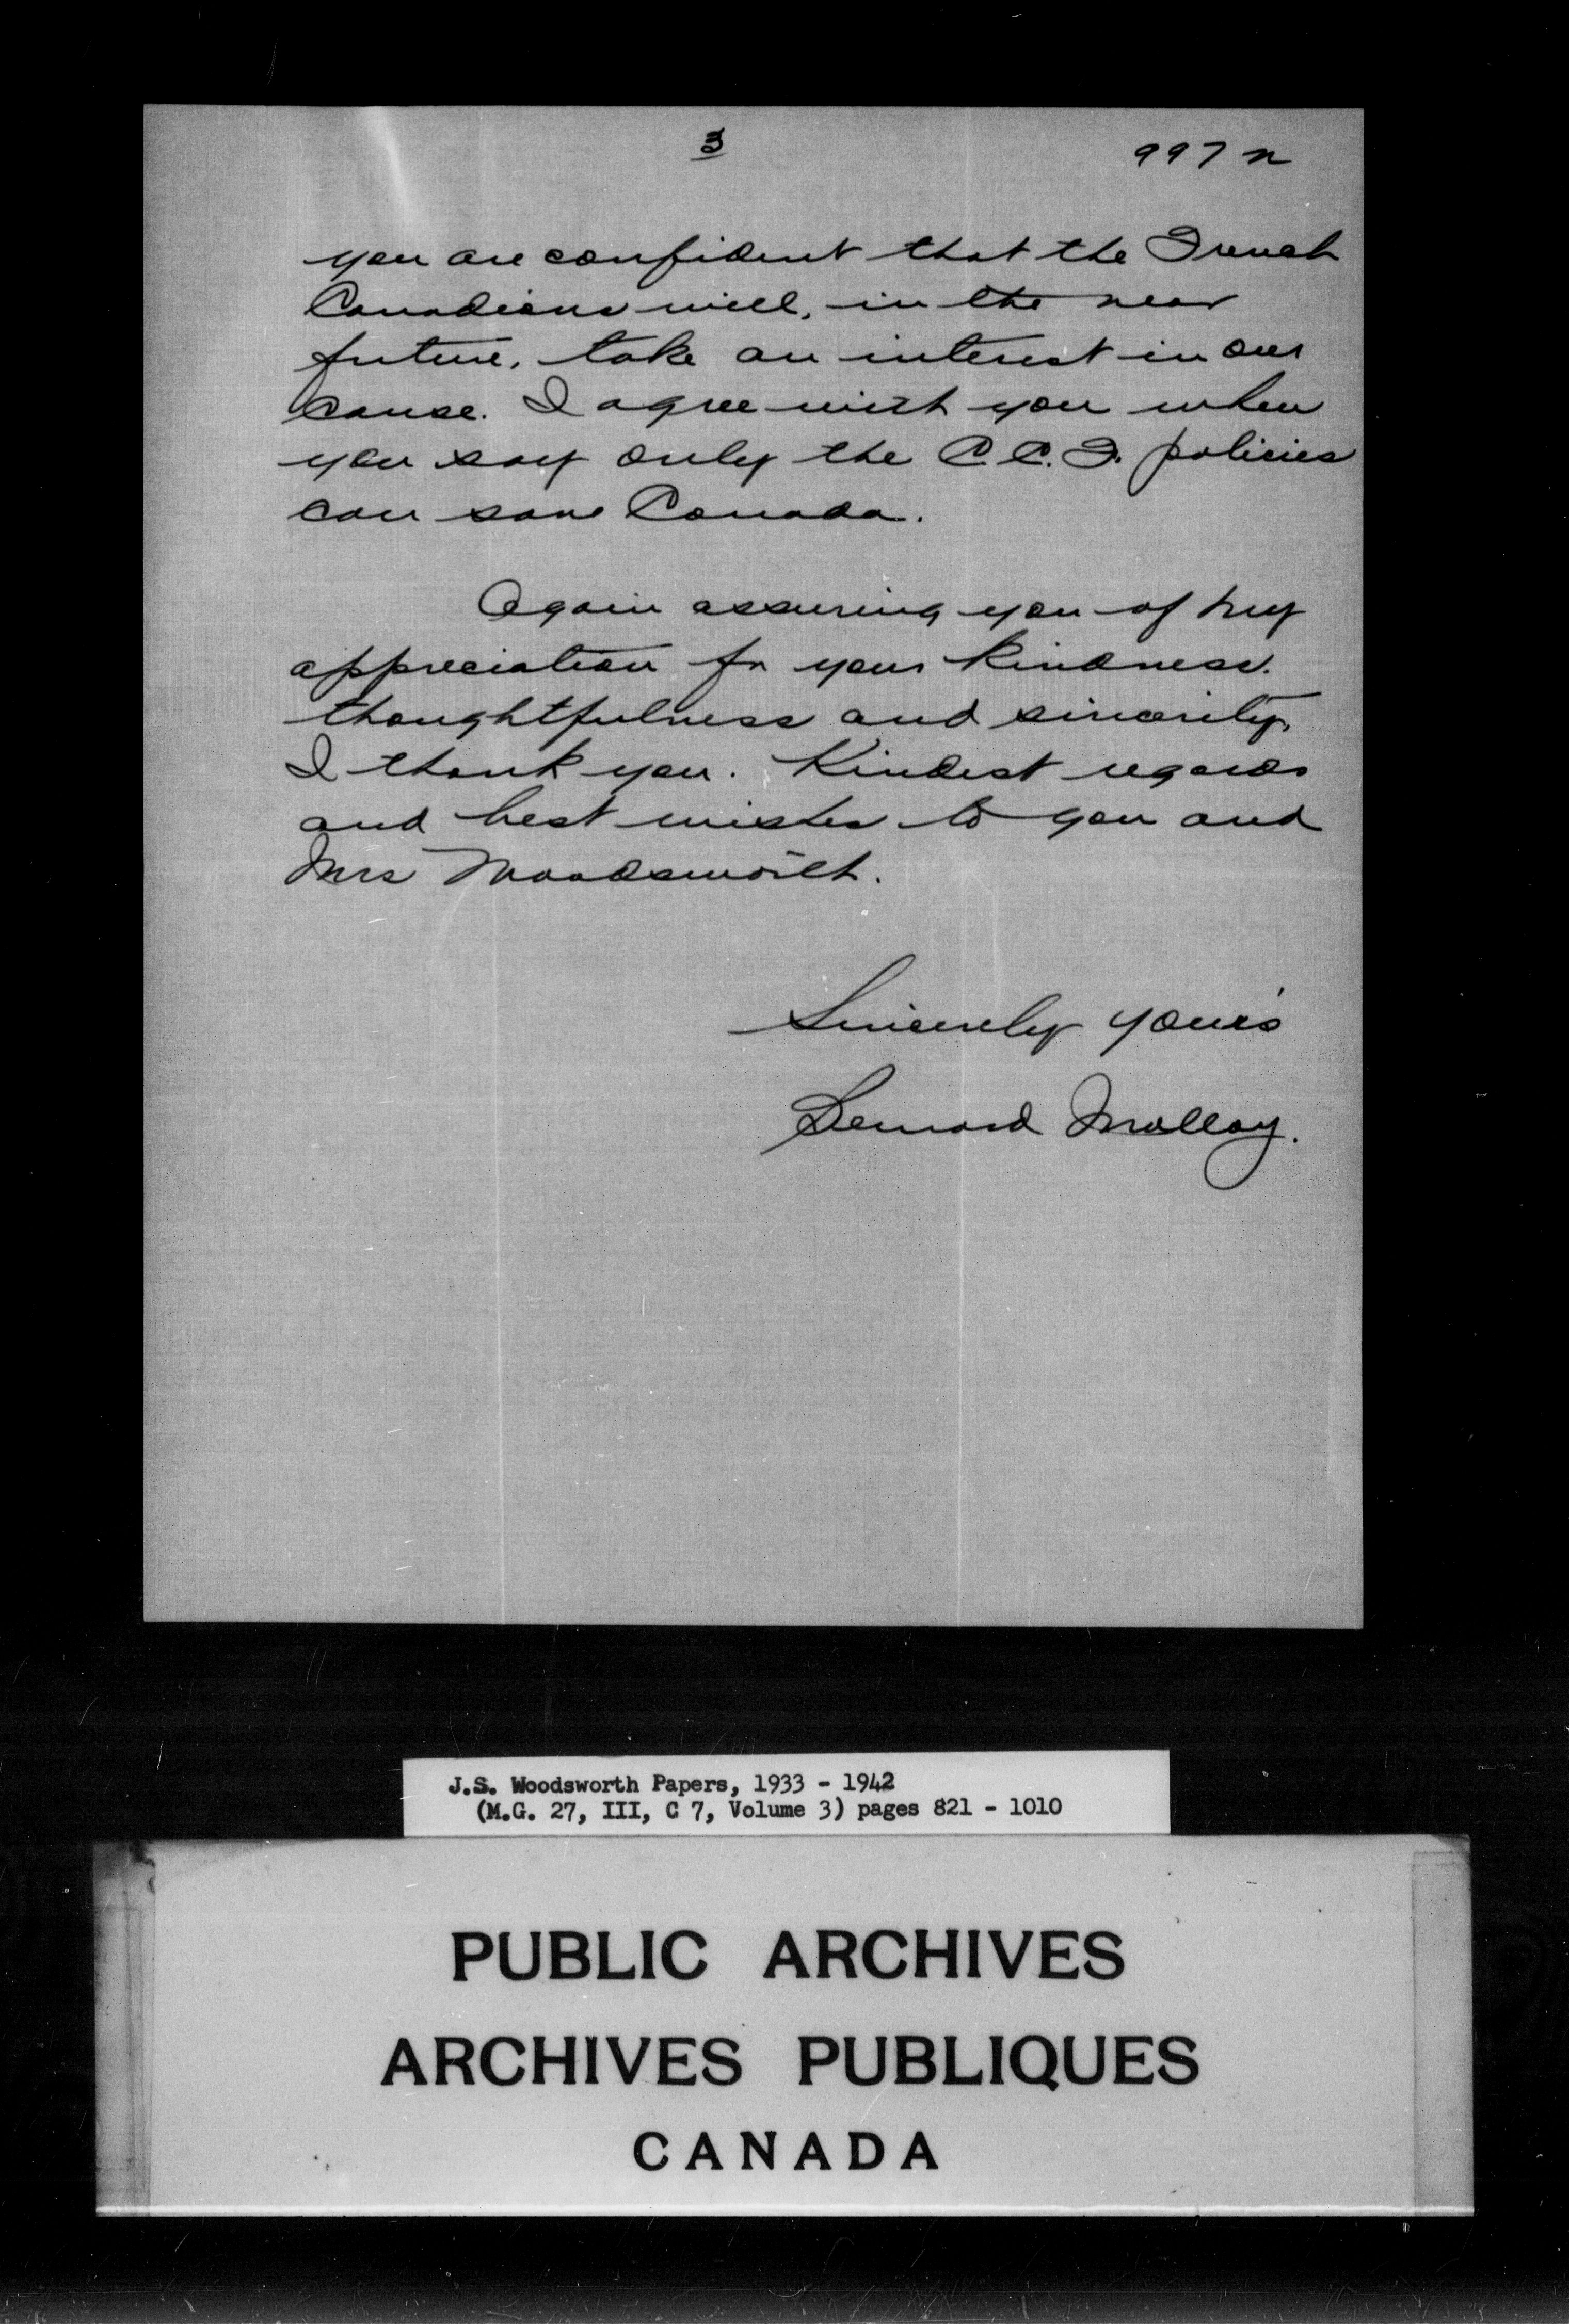 3
997 n
you are confident that the French
Canadians will, in the near
future, take an interest in our
cause. I agree with you when
you say only the C.C.F. policies
can save Canada.
Again assuring you of my
appreciation for your kindness.
thoughtfulness and sincerity,
I thank you. Kindest regards
and best wishes to you and
Mrs Woodsworth.
Sincerely your's
Bernard Molloy.
J.S. Woodsworth Papers, 1933 - 1942
(M.G. 27, III, C 7, Volume 3) pages 821 - 1010
PUBLIC ARCHIVES
ARCHIVES PUBLIQUES
CANADA